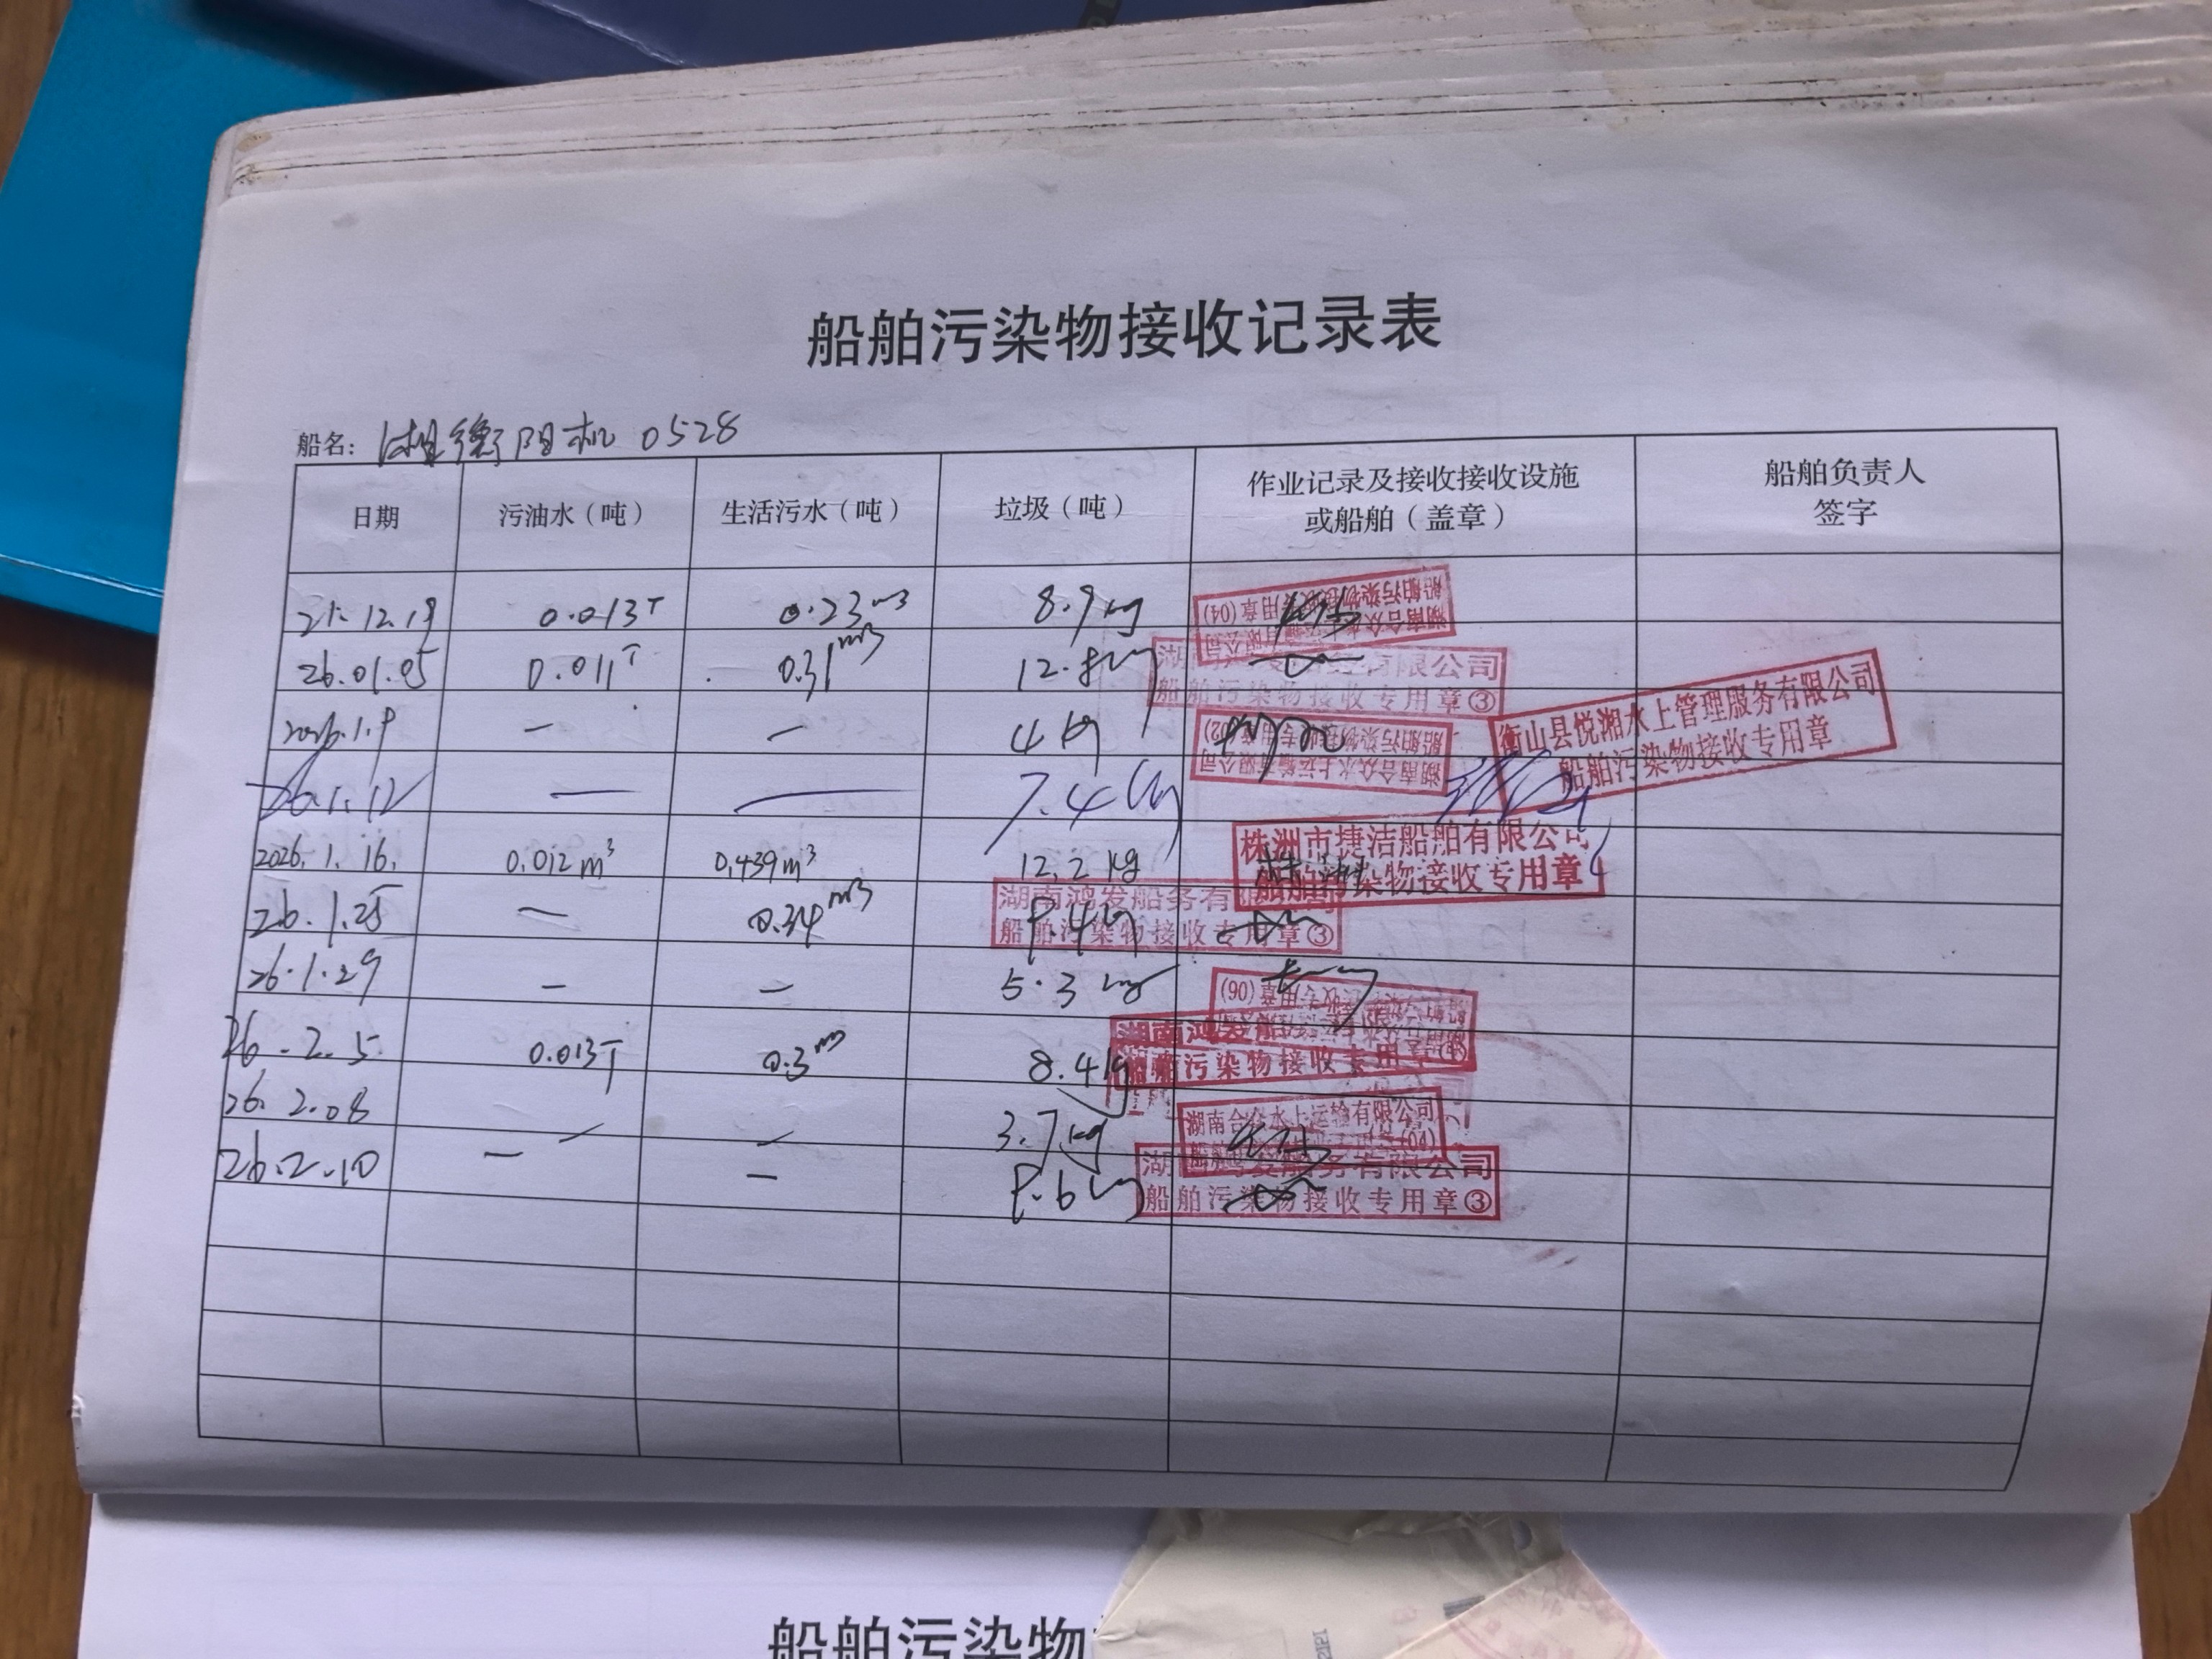 船舶污染物接收记录表
船名：湘衡阳机0528
日期 污油水（吨） 生活污水（吨） 垃圾（吨） 作业记录及接收接收设施或船舶（盖章） 船舶负责人签字
12.19 0.013T 0.23m3 8.9kg
湖南合众水上运输有限公司
船舶污染物接收专用章(04)
26.01.05 0.011T 0.31m3 12.8kg
湖南鸿发船务有限公司
船舶污染物接收专用章③
2026.1.9 — — 4kg
湖南合众水上运输有限公司
船舶污染物接收专用章(02)
衡山县悦湘水上管理服务有限公司
船舶污染物接收专用章
26.1.12 — — 7.4kg
2026.1.16. 0.012m³ 0.439m³ 12.2kg
株洲市捷洁船舶有限公司
船舶污染物接收专用章
26.1.25 — 0.34m3 8.4kg
湖南鸿发船务有限公司
船舶污染物接收专用章③
26.1.29 — — 5.3kg
26.2.5 0.013T 0.3m3 8.4kg
湖南鸿发船
污染物接收专用章
26.2.08 — — 3.7kg
湖南合众水上运输有限公司
26.2.10 — — 8.6kg
湖南鸿发船务有限公司
船舶污染物接收专用章③
船舶污染物